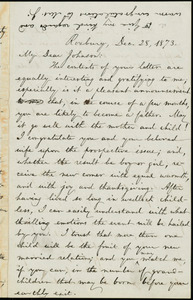 Roxbury, Dec. 28, 1873.
My Dear Johnson:
The contents of your letter are
equally interesting and gratifying to me,
especially as it is a pleasant announcement
that, in the course of a few months
you are likely to become a father. May
it go well with the mother and child!
I congratulate you and your beloved
wife upon the prospective issue; and,
whether the result be boy or girl, re-
ceive the new comer with equal warmth,
and with joy and thanksgiving. After
having lived so long in wedlock child-
less, I can easily understand with what
thrilling emotion the event will be hailed
by you. I trust that more than one
child will be the fruit of your new
married relation; and
if you can, or the number of grand-
children that may be yours before your
earthly exit.